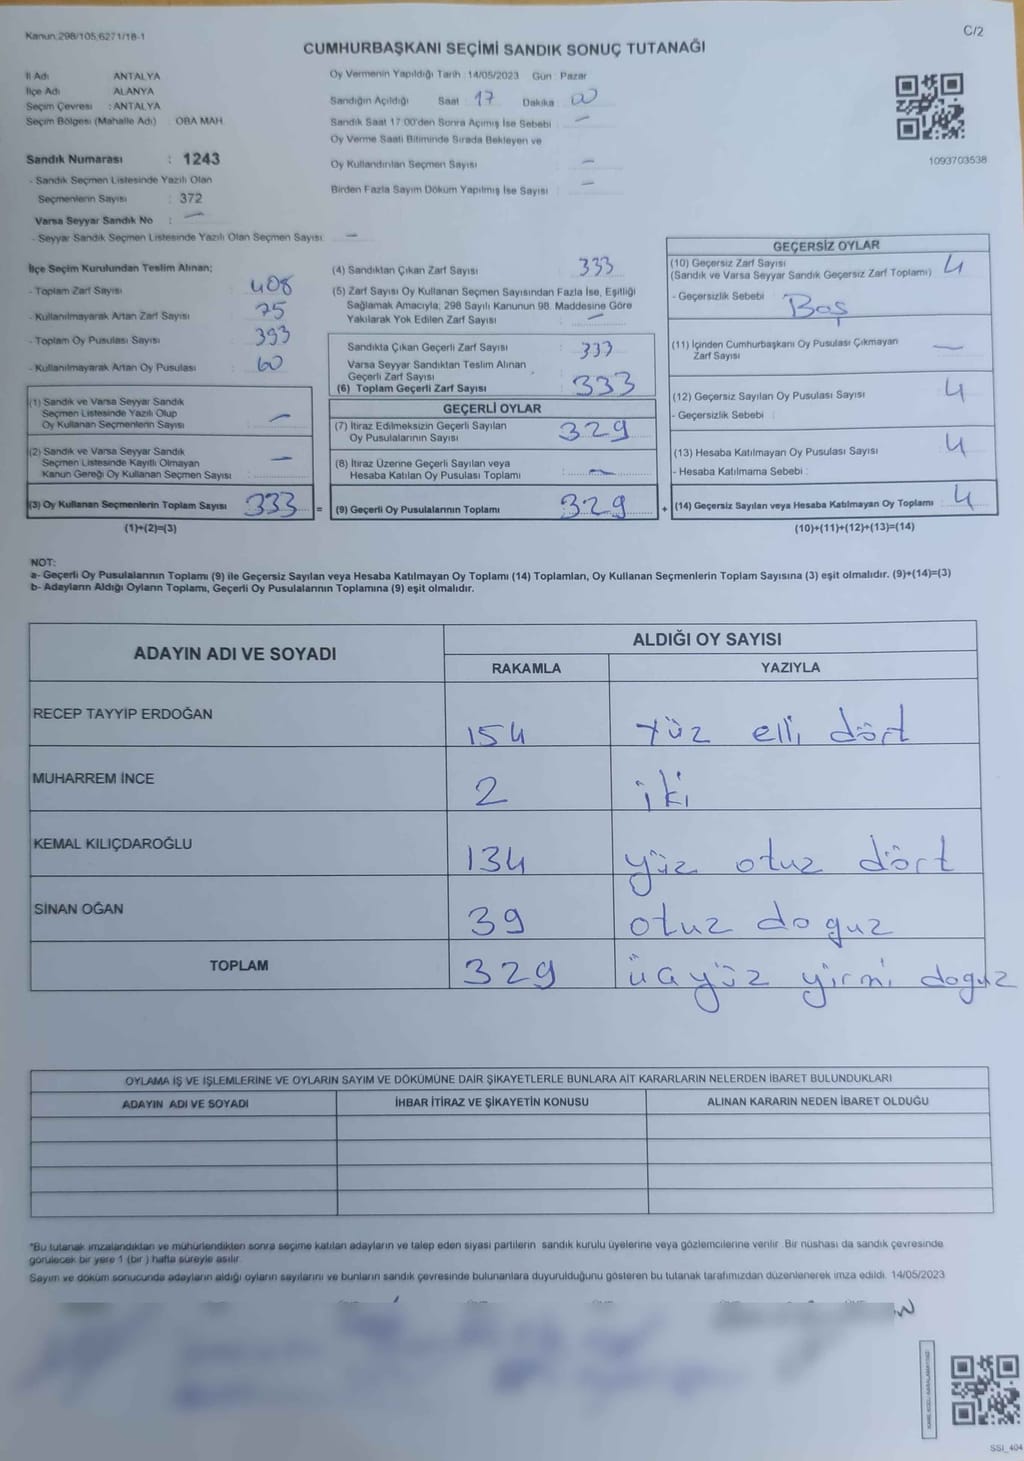 Kanun:298/105;6271/18-1
C/2
CUMHURBAŞKANI SEÇİMİ SANDIK SONUÇ TUTANAĞI
İl Adı ANTALYA
İlçe Adı ALANYA
Seçim Çevresi : ANTALYA
Seçim Bölgesi (Mahalle Adı) : OBA MAH.
Sandık Numarası : 1243
- Sandık Seçmen Listesinde Yazılı Olan
Seçmenlerin Sayısı : 372
Varsa Seyyar Sandık No : —
- Seyyar Sandık Seçmen Listesinde Yazılı Olan Seçmen Sayısı: —
Oy Vermenin Yapıldığı Tarih : 14/05/2023 Gün : Pazar
Sandığın Açıldığı Saat : 17 Dakika : 00
Sandık Saat 17:00'den Sonra Açımış İse Sebebi : —
Oy Verme Saati Bitiminde Sırada Bekleyen ve
Oy Kullandırılan Seçmen Sayısı : —
Birden Fazla Sayım Döküm Yapılmış İse Sayısı : —
1093703538
İlçe Seçim Kurulundan Teslim Alınan;
- Toplam Zarf Sayısı : 408
- Kullanılmayarak Artan Zarf Sayısı : 75
- Toplam Oy Pusulası Sayısı : 393
- Kullanılmayarak Artan Oy Pusulası : 60
(1) Sandık ve Varsa Seyyar Sandık
Seçmen Listesinde Yazılı Olup
Oy Kullanan Seçmenlerin Sayısı : —
(2) Sandık ve Varsa Seyyar Sandık
Seçmen Listesinde Kayıtlı Olmayan
Kanun Gereği Oy Kullanan Seçmen Sayısı : —
(3) Oy Kullanan Seçmenlerin Toplam Sayısı : 333 =
(1)+(2)=(3)
(4) Sandıktan Çıkan Zarf Sayısı : 333
(5) Zarf Sayısı Oy Kullanan Seçmen Sayısından Fazla İse, Eşitliği
Sağlamak Amacıyla; 298 Sayılı Kanunun 98. Maddesine Göre
Yakılarak Yok Edilen Zarf Sayısı : —
Sandıkta Çıkan Geçerli Zarf Sayısı : 333
Varsa Seyyar Sandıktan Teslim Alınan
Geçerli Zarf Sayısı
(6) Toplam Geçerli Zarf Sayısı : 333
GEÇERLİ OYLAR
(7) İtiraz Edilmeksizin Geçerli Sayılan
Oy Pusulalarının Sayısı : 329
(8) İtiraz Üzerine Geçerli Sayılan veya
Hesaba Katılan Oy Pusulası Toplamı : —
(9) Geçerli Oy Pusulalarının Toplamı : 329 +
GEÇERSİZ OYLAR
(10) Geçersiz Zarf Sayısı
(Sandık ve Varsa Seyyar Sandık Geçersiz Zarf Toplamı) : 4
- Geçersizlik Sebebi : Boş
(11) İçinden Cumhurbaşkanı Oy Pusulası Çıkmayan
Zarf Sayısı : —
(12) Geçersiz Sayılan Oy Pusulası Sayısı : 4
- Geçersizlik Sebebi :
(13) Hesaba Katılmayan Oy Pusulası Sayısı : 4
- Hesaba Katılmama Sebebi :
(14) Geçersiz Sayılan veya Hesaba Katılmayan Oy Toplamı : 4
(10)+(11)+(12)+(13)=(14)
NOT:
a- Geçerli Oy Pusulalarının Toplamı (9) ile Geçersiz Sayılan veya Hesaba Katılmayan Oy Toplamı (14) Toplamları, Oy Kullanan Seçmenlerin Toplam Sayısına (3) eşit olmalıdır. (9)+(14)=(3)
b- Adayların Aldığı Oyların Toplamı, Geçerli Oy Pusulalarının Toplamına (9) eşit olmalıdır.
ADAYIN ADI VE SOYADI
ALDIĞI OY SAYISI
RAKAMLA YAZIYLA
RECEP TAYYİP ERDOĞAN 154 yüz elli dört
MUHARREM İNCE 2 iki
KEMAL KILIÇDAROĞLU 134 yüz otuz dört
SİNAN OĞAN 39 otuz doguz
TOPLAM 329 üçyüz yirmi doguz
OYLAMA İŞ VE İŞLEMLERİNE VE OYLARIN SAYIM VE DÖKÜMÜNE DAİR ŞİKAYETLERLE BUNLARA AİT KARARLARIN NELERDEN İBARET BULUNDUKLARI
ADAYIN ADI VE SOYADI İHBAR İTİRAZ VE ŞİKAYETİN KONUSU ALINAN KARARIN NEDEN İBARET OLDUĞU
*Bu tutanak imzalandıktan ve mühürlendikten sonra seçime katılan adayların ve talep eden siyasi partilerin sandık kurulu üyelerine veya gözlemcilerine verilir. Bir nüshası da sandık çevresinde
görülecek bir yere 1 (bir ) hafta süreyle asılır.
Sayım ve döküm sonucunda adayların aldığı oyların sayılarını ve bunların sandık çevresinde bulunanlara duyurulduğunu gösteren bu tutanak tarafımızdan düzenlenerek imza edildi. 14/05/2023
SSI_404